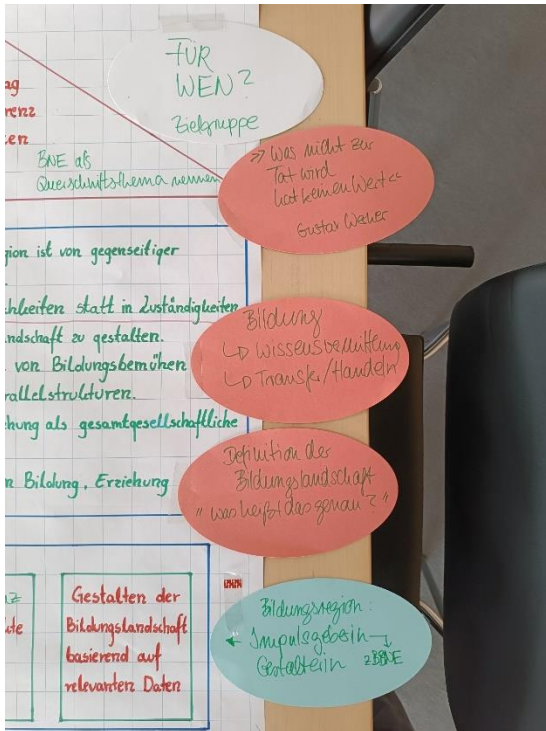 FÜR
WEN?
Zielgruppe
BNE als
Querschnittsthema nennen
>> Was nicht zur
Tat wird
hat keinen Wert <<
Gustav Werner
gion ist von gegenseitiger
hkeiten statt in Zuständigkeiten
ndschaft zu gestalten.
von Bildungsbemühen
rallelstrukturen.
hung als gesamtgesellschaftliche
n Bildung, Erziehung
Bildung
↳ Wissensvermittlung
↳ Transfer/Handeln
Definition der
Bildungslandschaft
"was heißt das genau?"
Gestalten der
Bildungslandschaft
basierend auf
relevanten Daten
Bildungsregion:
← Impulsgeberin
Gestalterin